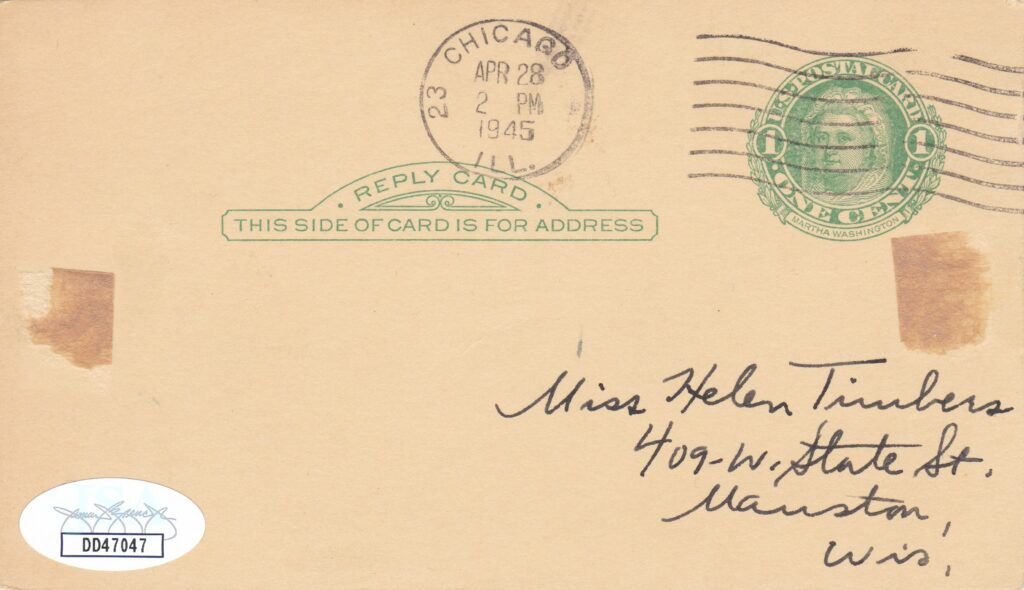 CHICAGO
23
APR 28
2 PM
1945
ILL.
U.S. POSTAL CARD
1 1
ONE CENT
MARTHA WASHINGTON
REPLY CARD
THIS SIDE OF CARD IS FOR ADDRESS
Miss Helen Timbers
409-W. State St.
Mauston,
Wis.
JSA
DD47047